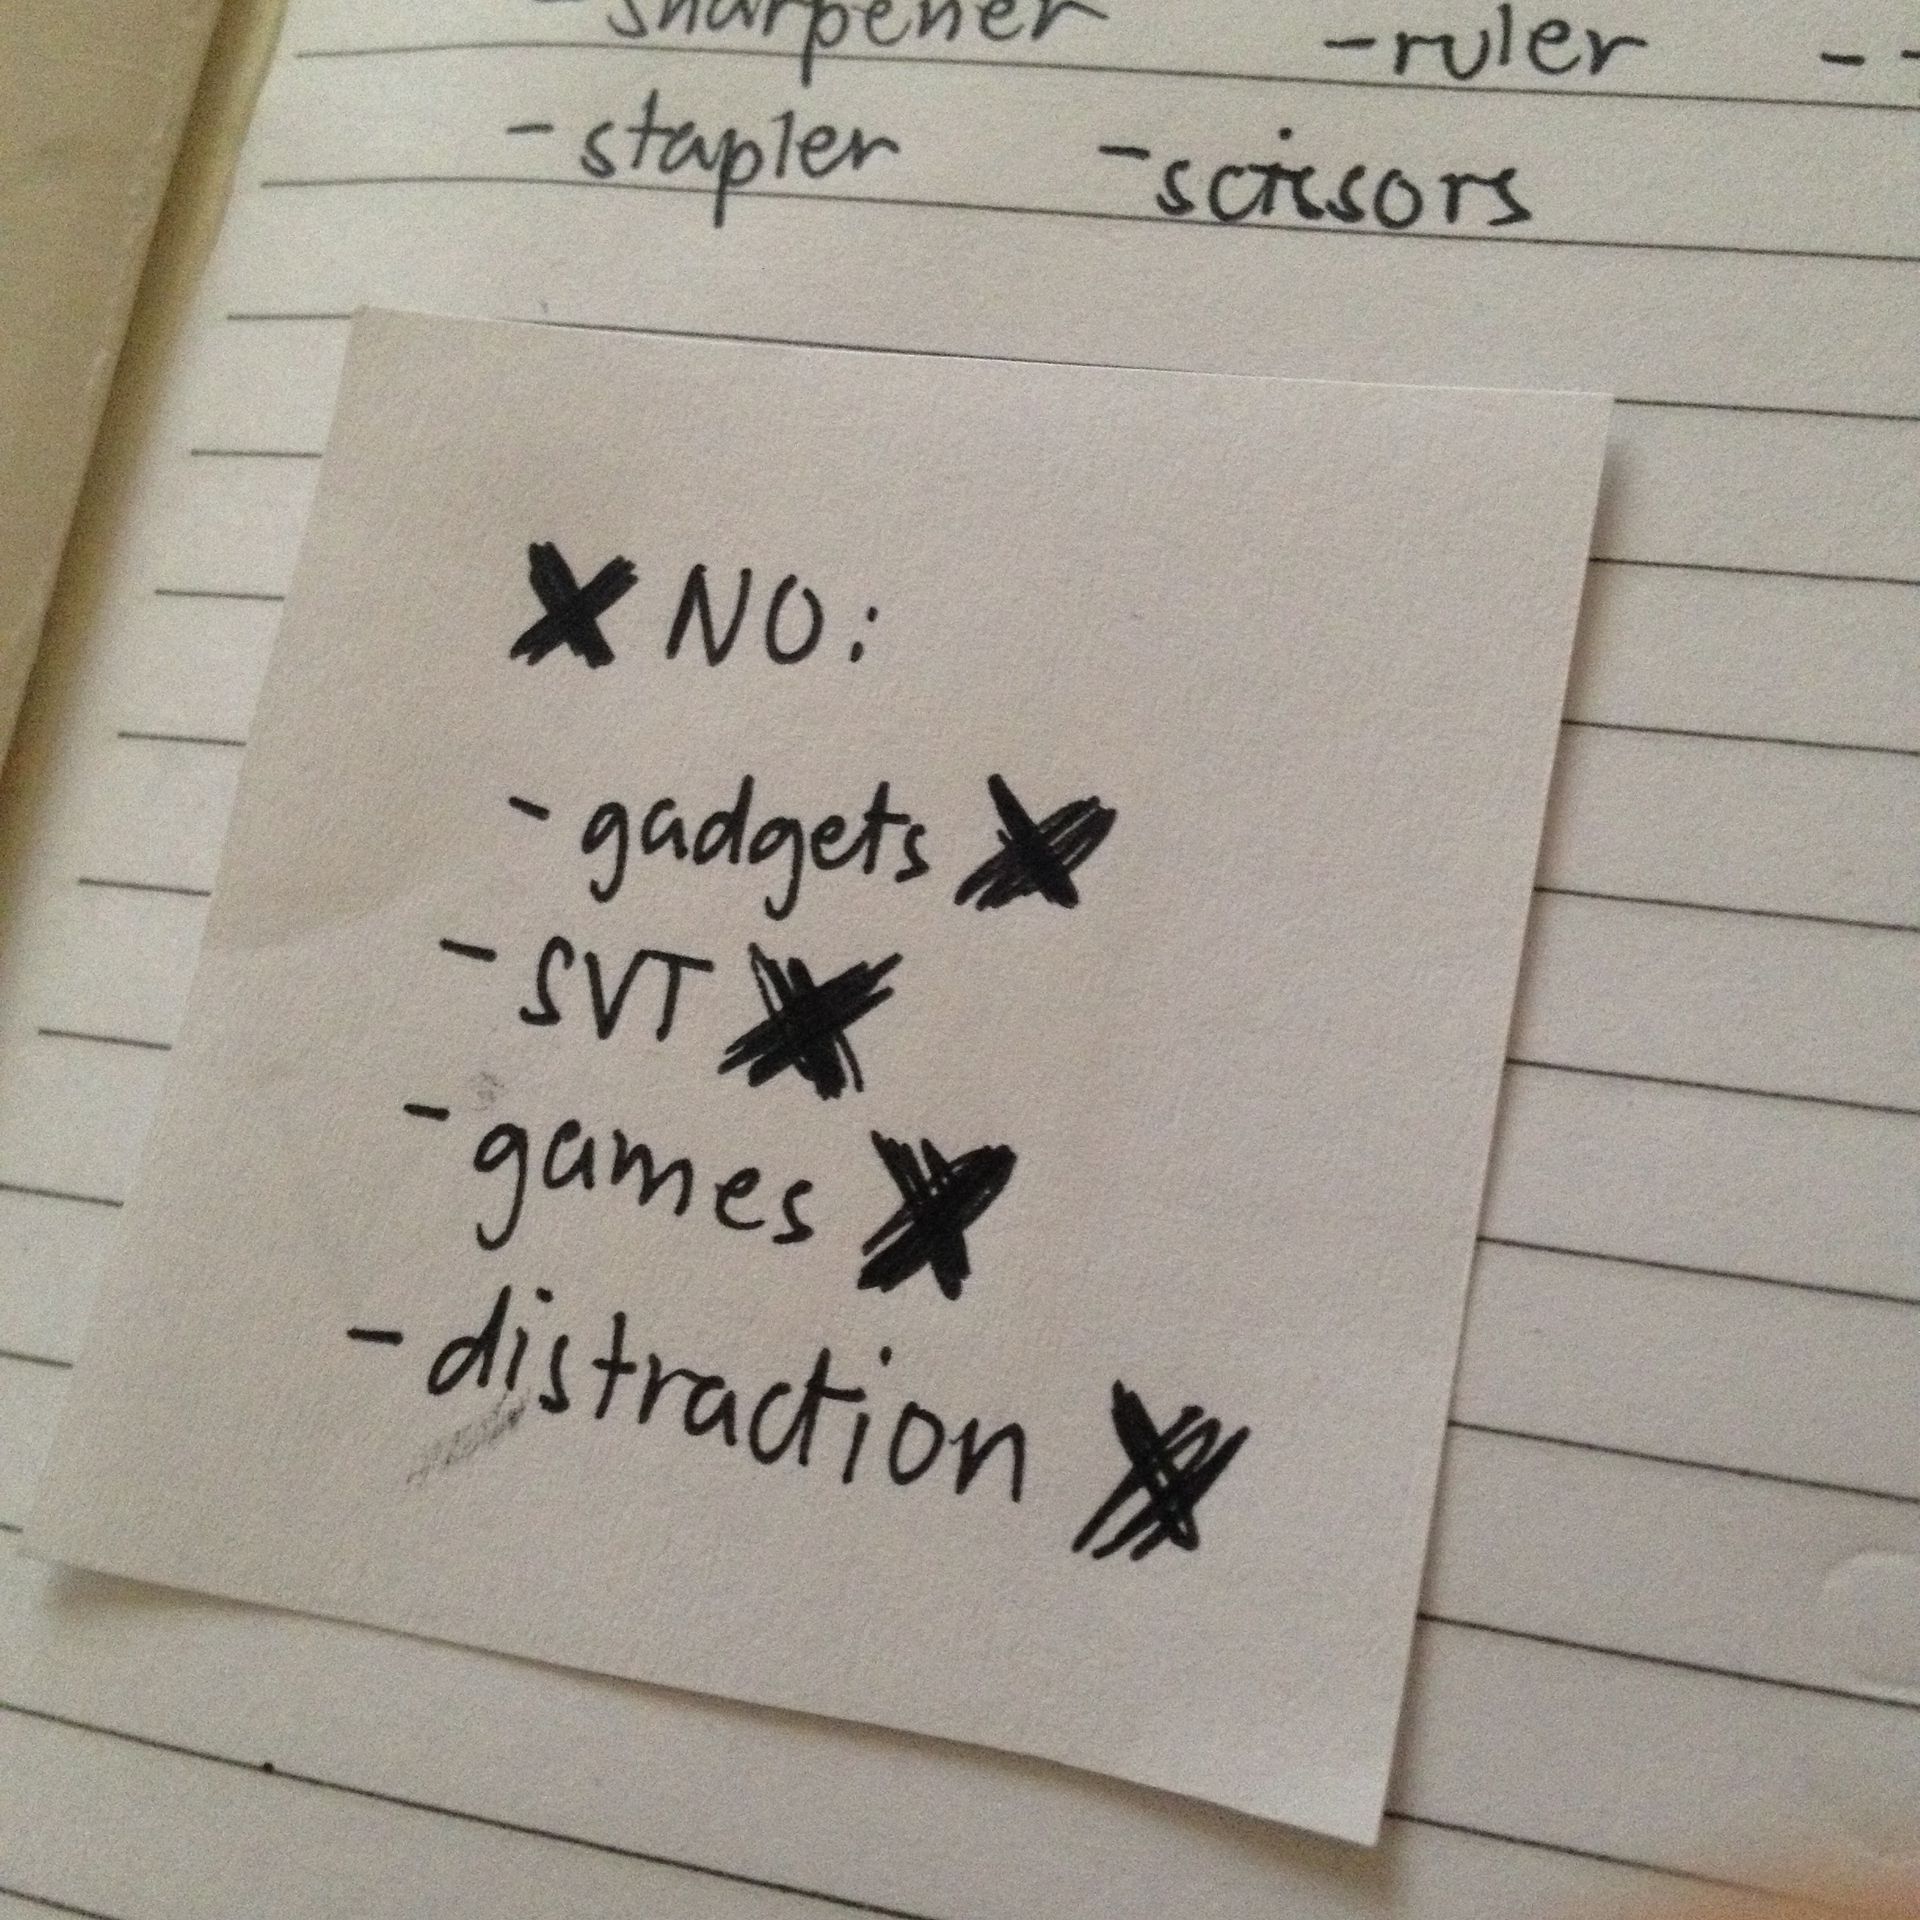 - sharpener - ruler -
- stapler - scissors
X NO:
- gadgets X
- SVT X
- games X
- distraction X